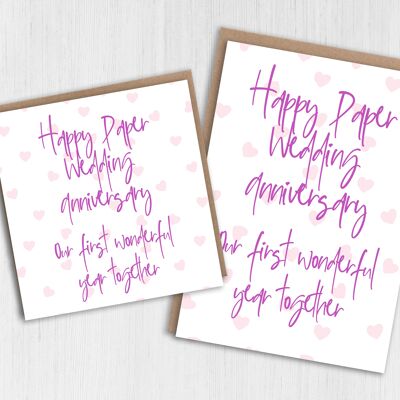 Happy Paper
Wedding
anniversary
Our first wonderful
year together
Happy Paper
Wedding
anniversary
Our first wonderful
year together